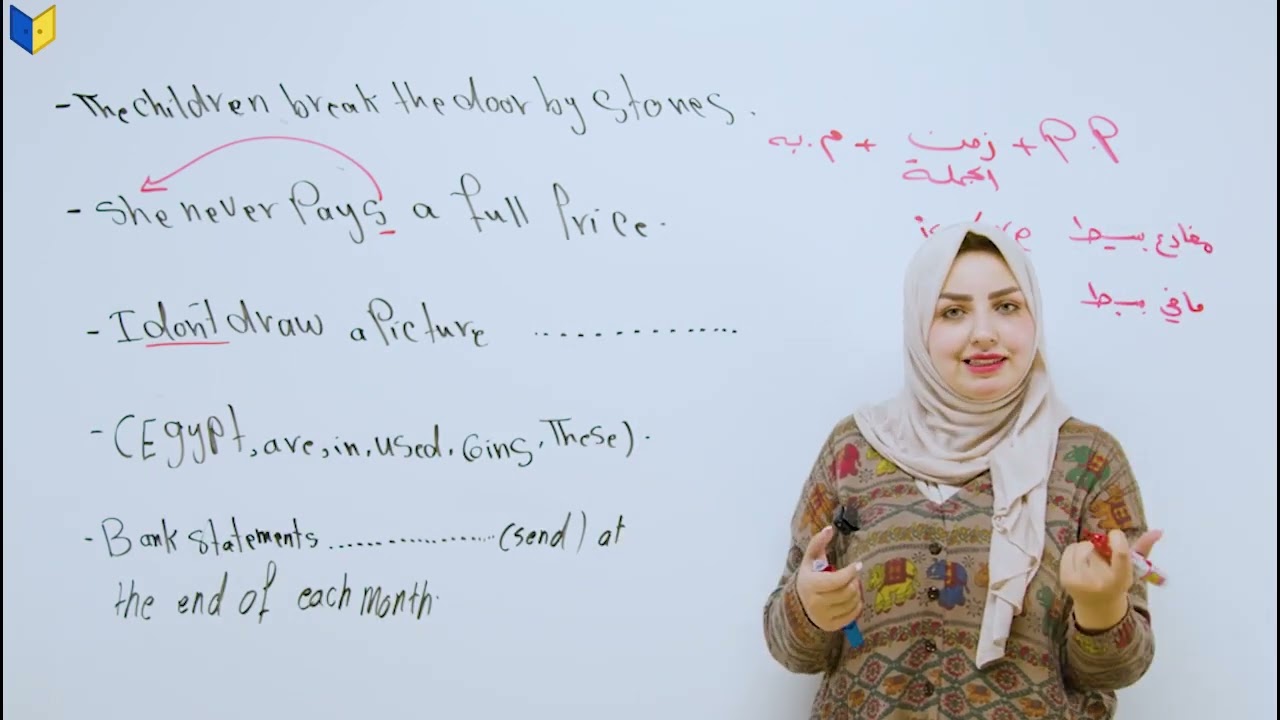 - The children break the door by stones.
- She never Pays a full Price.
- I don't draw a Picture ..............
- (Egypt, are, in, used, Coins, These).
- Bank statements .................. (send) at
the end of each month.
م.به + زمن الجملة + P.P
مضارع بسيط
ماضي بسيط